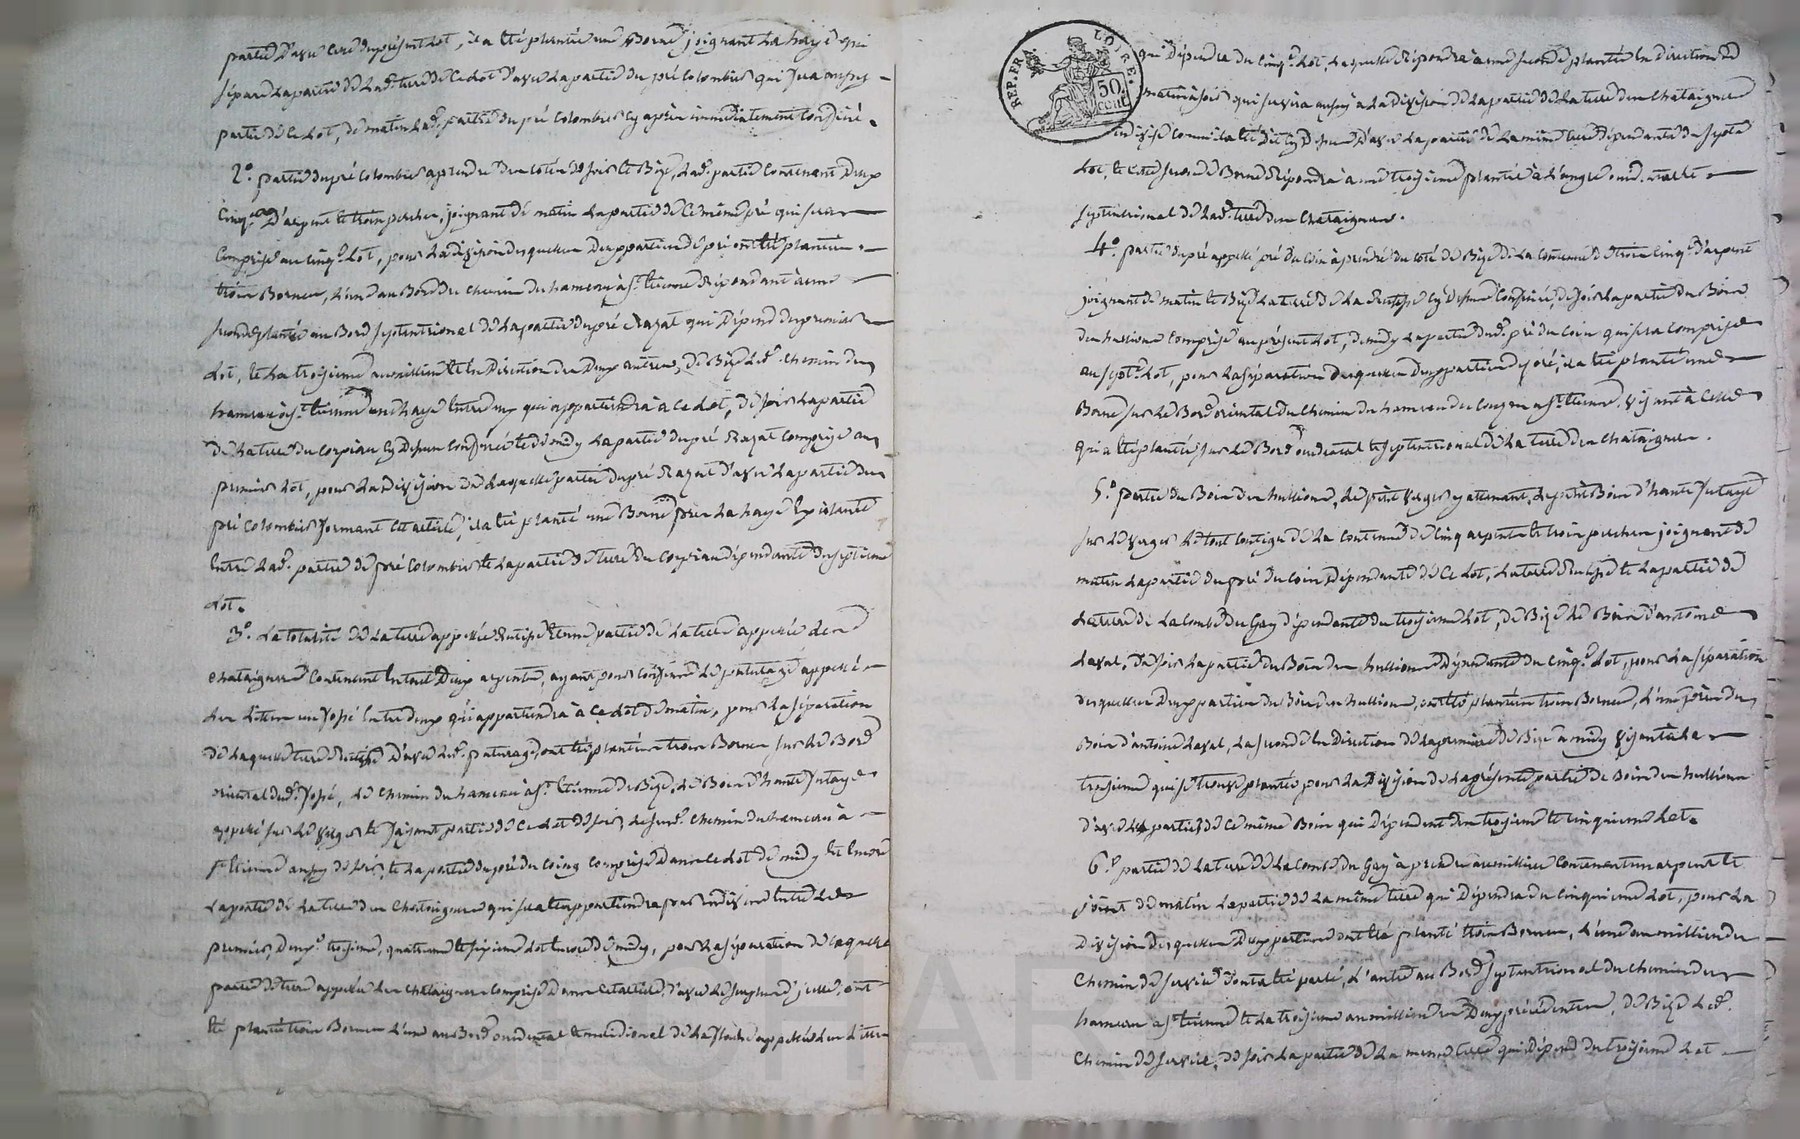 partie d'avec celle du présent lot, il a été plantée une Borne joignant la haye qui
sépare la partie de lad. terre de ce lot d'avec la partie du pré Colombier qui fera aussy
partie de ce lot, de matin lad. partie du pré Colombier cy après immédiatement confiné.
2º. partie du pré Colombier a prendre du coté de soir et Bize, lad. partie Contenant Deux
Cinq.es D'arpent et trois perches, joignant de matin la partie de Ce même pré qui sera
Comprise au cinq.e lot, pour la division desquelles Deux parties de pré ont été plantées
trois Bornes, l'une au Bord du chemin du hameau à St. Etienne Répondant à une
seconde plantée au Bord septentrional de la partie du pré Razat qui dépend du premier
lot, et la troisieme au milieu et en Direction des Deux autres, de Bize led. chemin du
hameau à St. Etienne une haye entre deux qui appartiendra à ce lot, de soir la partie
de la terre du Corpiau cy Dessus confinée et de midy la partie du pré Razat comprise au
premier lot, pour la division de laquelle partie du pré Razat d'avec la partie du
pré Colombier formant cet article, il a été planté une Borne près la haye Existante
Entre lad. partie de pré Colombier et la partie de terre du Corpiau dépendante du septieme
lot.
3º. La totalité de la terre appellée et une partie de la terre appellée des
chataigners Contenant en tout Deux arpents, ayant pour confins le paturage appellé
des un fossé Entre deux qui appartiendra à ce lot de matin, pour la séparation
de laquelle terre d'avec led. paturage, ont été plantées trois Bornes sur le Bord
oriental dud. fossé, le chemin du hameau à St. Etienne de Bize, le Bois d'haute futaye
appellé sur le verger et faisant partie de ce lot de soir, le susd. chemin du hameau à
St. Etienne aussy de soir, et la partie du pré du Coing comprise Dans ce lot de midy et Encore
la partie de la terre des Chataigners qui
premier, Deux.e troisieme, quatrieme et sixieme lot Encore de midy, pour la séparation de laquelle
partie de terre appellée des chataigners comprise Dans cet article, d'avec ont
été plantées trois Bornes l'une au Bord occidental et méridional de la appellée des
REP. FR. LOIRE.
50 CENT.
qui Dépendra du Cinq.e lot, laquelle Répondra à une seconde plantée En direction de
matin à soir qui servira aussy à la Division de la partie de la terre des Chataigners
indivise comme il a été Dit cy Dessus d'avec la partie de la même terre dépendante du septe.
lot, et cette seconde Borne Répondra à une troisieme plantée à L'angle
septentrional de lad. terre des Chataigners.
4º. partie du pré appellé pré du Coin à prendre du coté de Bize de la Contenue de trois Cinq.es d'arpent
joignant de matin et Bize la terre de la cy Dessus Confinée, de soir la partie du Bois
des hussions Comprise au présent lot, de midy la partie dud. pré du Coin qui sera Comprise
au sept.e lot, pour la séparation desquelles Deux parties de pré, il a été planté une
Borne sur le Bord oriental du Chemin du hameau du à St. Etienne, visant à Celle
qui a été plantée sur le Bord occidental et septentrional de la terre des Chataigners.
5º. partie du Bois des hussions, le petit verger y attenant, le petit Bois d'haute futaye
sur le verger le tout Contigu de la Contenue de Cinq arpents et trois perches joignant de
matin la partie du pré du Coin Dépendante de Ce lot, la terre et la partie de
la terre de la Combe du Gay dépendante du troisieme lot, de Bize le Bois d'antoine
Laval, de soir la partie du Bois des hussions Dépendante du Cinq.e lot, pour la séparation
desquelles Deux parties du Bois des hussions, ont été plantées trois Bornes, l'une près du
Bois d'antoine Laval, la seconde En Direction de la premiere de Bize à midy visant à la
troisieme qui se trouve plantée pour la Division de la présente partie de Bois des hussions
d'avec les parties de Ce même Bois qui dépendent des troisieme et Cinquieme lot.
6º. partie de la terre de la Combe du Gay à prendre au milieu Contenant un arpent et
joint de matin la partie de la même terre qui Dépendra du Cinquieme lot, pour la
Division desquelles Deux parties ont été planté trois Bornes, l'une au milieu du
Chemin de service dont a été parlé, l'autre au Bord septentrional du Chemin du
hameau à St. Etienne et la troisieme au milieu des Deux précédentes, de Bize led.
Chemin de service, de soir la partie de la même terre qui Dépend du troisieme lot